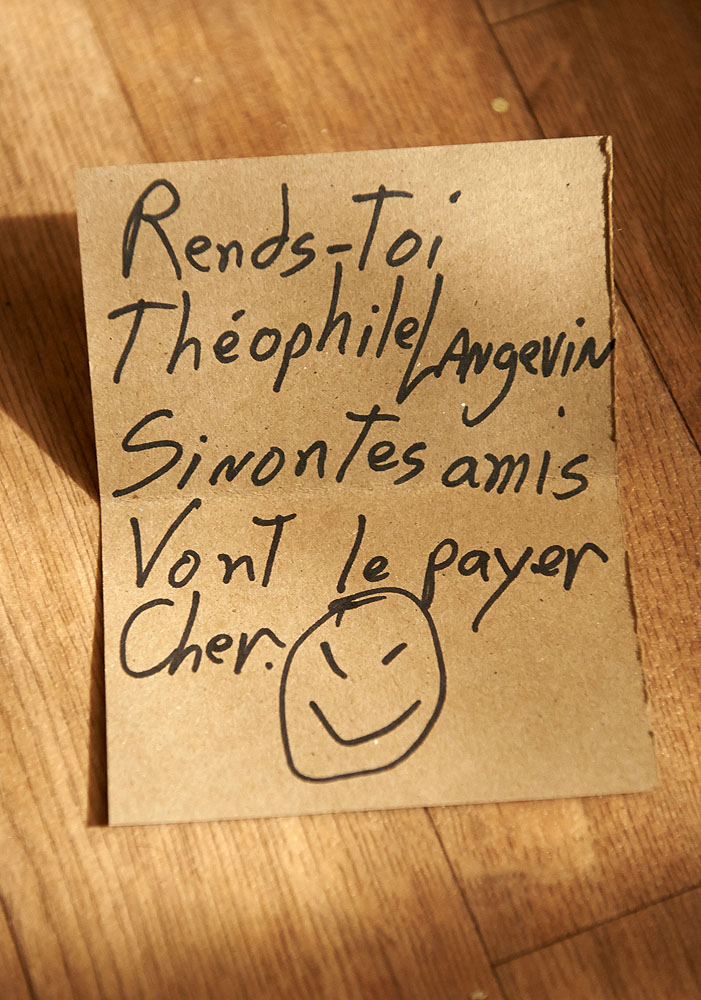 Rends-Toi
Théophile Langevin
Sinon Tes amis
Vont le payer
Cher.